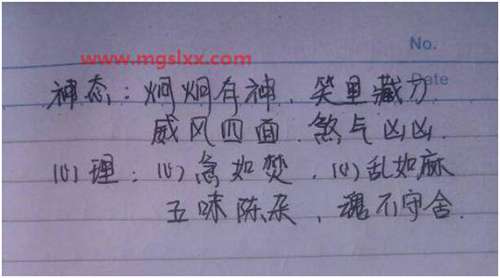 www.mgslxx.com
No.
Date
神态：炯炯有神、笑里藏刀
威风四面、煞气凶凶.
心理：心急如焚、心乱如麻
五味陈杂、魂不守舍.